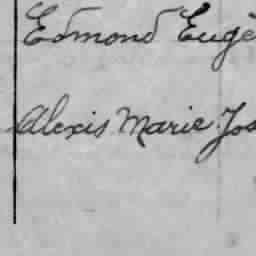 Edmond Eugè
Alexis Marie Jos